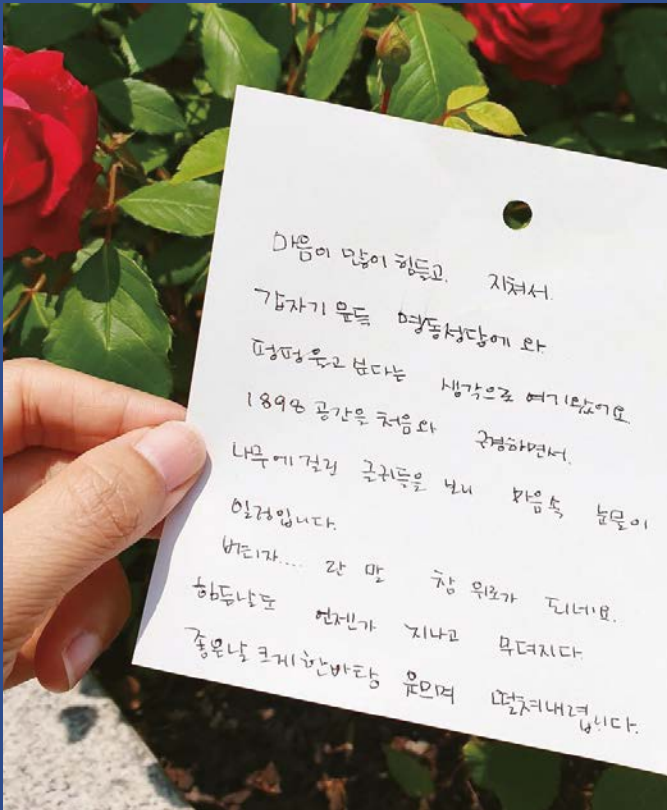 마음이 많이 힘들고. 지쳐서.
갑자기 문득 명동성당에 와
펑펑울고 싶다는 생각으로 여기왔어요
1898 공간을 처음와 구경하면서.
나무에 걸린 글귀들을 보니 마음속 눈물이
일렁입니다.
버티자.... 란 말 참 위로가 되네요.
힘든날도 언젠가 지나고 무뎌지다.
좋은날 크게 한바탕 웃으며 떨쳐내렵니다.